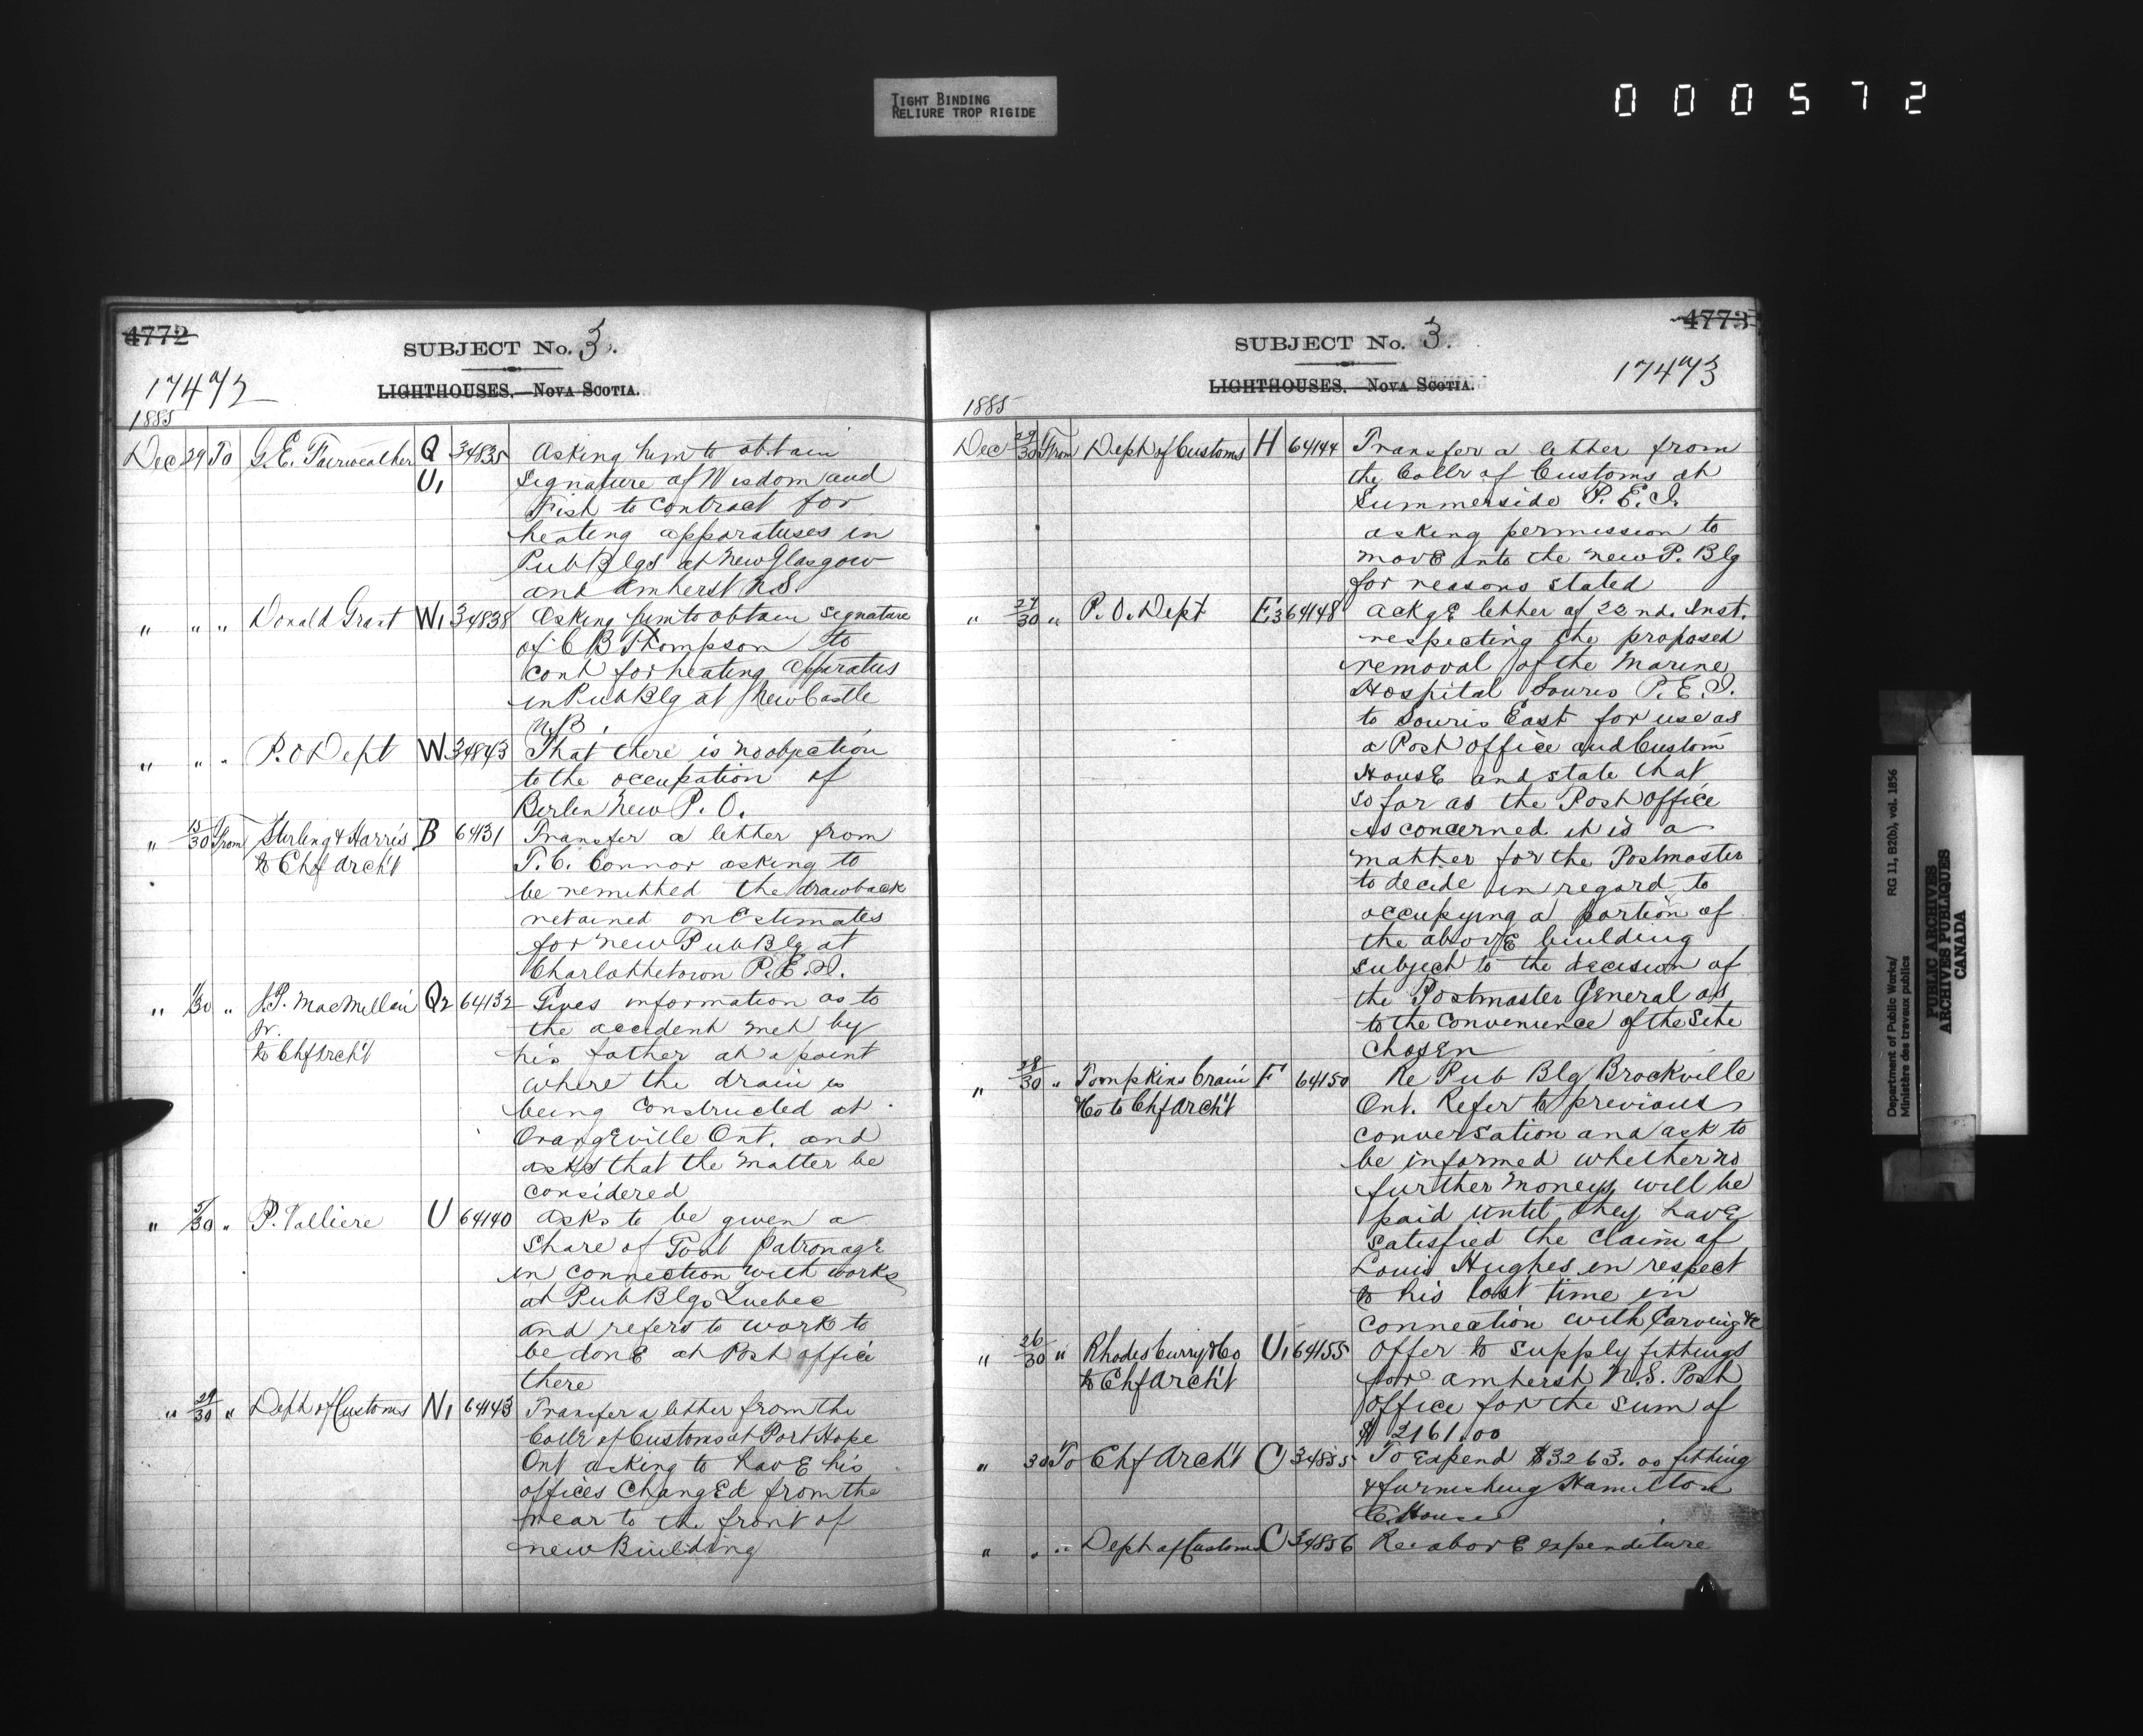 TIGHT BINDING
RELIURE TROP RIGIDE
000572
4772
SUBJECT No. 3.
17472
LIGHTHOUSES.—NOVA SCOTIA.
1885
Dec 29 To G. E. Fairweather Q 34835 Asking him to obtain
U1 signature of Wisdom and
Fish to contract for
heating apparatuses in
Pub Blgs at New Glasgow
and Amherst N.S.
" " " Donald Grant W1 34838 Asking him to obtain signature
of C B Thompson to
cont for heating apparatus
in Pub Blg at New Castle
N.B.
" " " P. O Dept W 34843 That there is no objection
to the occupation of
Berlin New P. O.
" 15/30 From Stirling & Harris B 64131 Transfer a letter from
to Chf Arch't T. C. Connor asking to
be remitted the drawback
retained on Estimates
for new Pub Blg at
Charlottetown P. E. I.
" 30 " J. P. MacMillan Q2 64132 Gives information as to
Jr. the accident met by
to Chf Arch't his father at a point
where the drain is
being constructed at
Orangeville Ont. and
asks that the matter be
considered
" 5/30 " P. Valliere U 64140 Asks to be given a
share of Govt Patronage
in connection with works
at Pub Blgs Quebec
and refers to work to
be done at Post office
there
" 29/30 " Dept of Customs N1 64143 Transfer a letter from the
Collr of Customs at Port Hope
Ont asking to have his
offices changed from the
rear to the front of
new Building
4773
SUBJECT No. 3.
17473
LIGHTHOUSES.—NOVA SCOTIA.
1885
Dec 29/30 From Dept of Customs H 64144 Transfer a letter from
the Collr of Customs at
Summerside P. E. I.
asking permission to
move into the new P. Blg
for reasons stated
" 29/30 " P. O. Dept E3 64148 Ackge letter of 22nd. Inst.
respecting the proposed
removal of the Marine
Hospital Souris P. E. I.
to Souris East for use as
a Post office and Custom
House and state that
so far as the Post office
is concerned it is a
matter for the Postmaster
to decide in regard to
occupying a portion of
the above building
subject to the decision of
the Postmaster General as
to the convenience of the Site
chosen
" 28/30 " Tompkins Crain F 64150 Re Pub Blg Brockville
& Co to Chf Arch't Ont. Refer to previous
conversation and ask to
be informed whether no
further moneys will be
paid until they have
satisfied the claim of
Louis Hughes in respect
to his lost time in
connection with Carving &c
" 26/30 " Rhodes Curry & Co U1 64155 Offer to supply fittings
to Chf Arch't for Amherst N.S. Post
office for the sum of
$ 2161.00
" 30 To Chf Arch't C 34855 To expend $3263.00 fitting
& furnishing Hamilton
C. House
" " " Dept of Customs C 34856 Re above expenditure
Department of Public Works/ RG 11, B2(b), vol. 1856
Ministère des travaux publics
PUBLIC ARCHIVES
ARCHIVES PUBLIQUES
CANADA